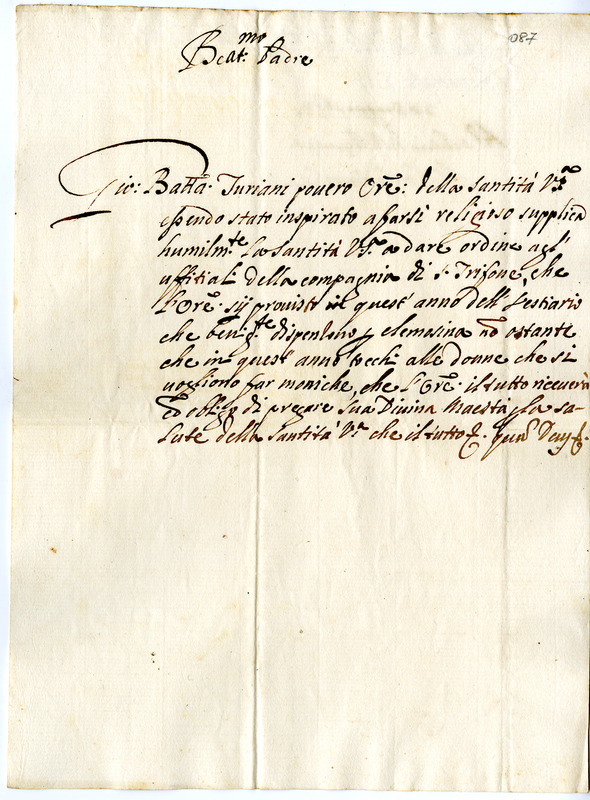 087
Beat.mo Padre
Gio: Batta. Turiani povero Ore: della Santità V.ra
essendo stato inspirato a farsi religioso supplica
humilm.te la Santità V.ra a dare ordine agl'
uffitiali della compagnia di S. Trifone, che
l'Ore: sij provisto in quest'anno dell Vestiario
che benig.te dispensano p elemosina nō ostante
che in quest'anno tochi alle donne che si
vogliono far moniche, che l'Ore: il tutto riceverà
cō obligo di pregare Sua Divina Maestà p la sa-
lute della Santità V.ra che il tutto